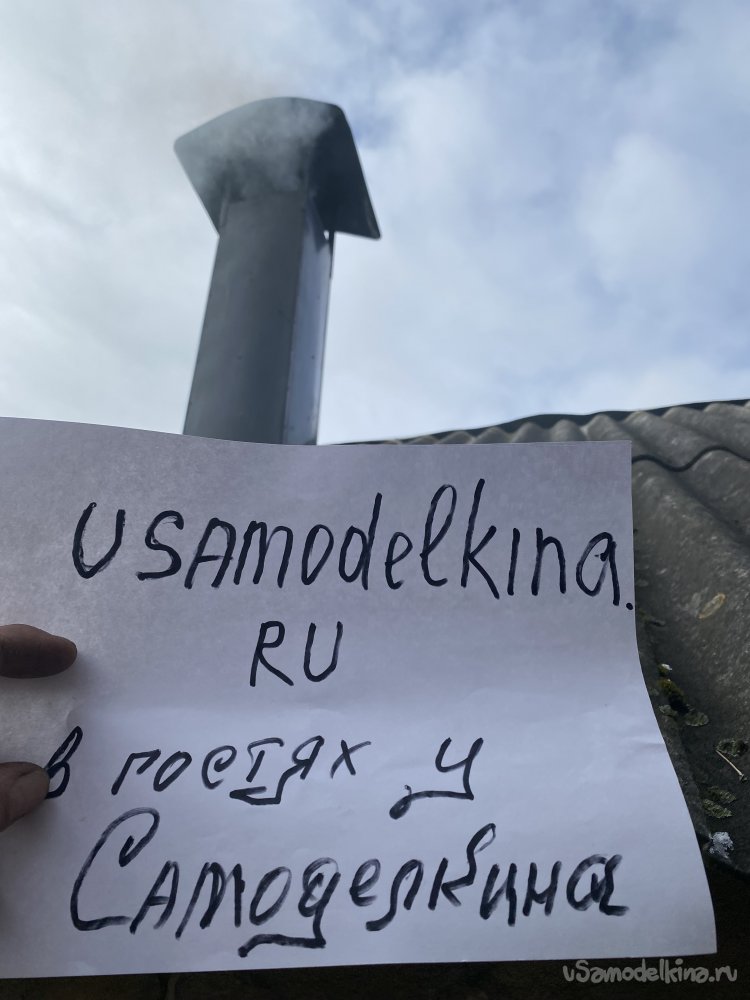 USAMOdelkina.
RU
в гостях у
Самоделкина
uSamodelkina.ru